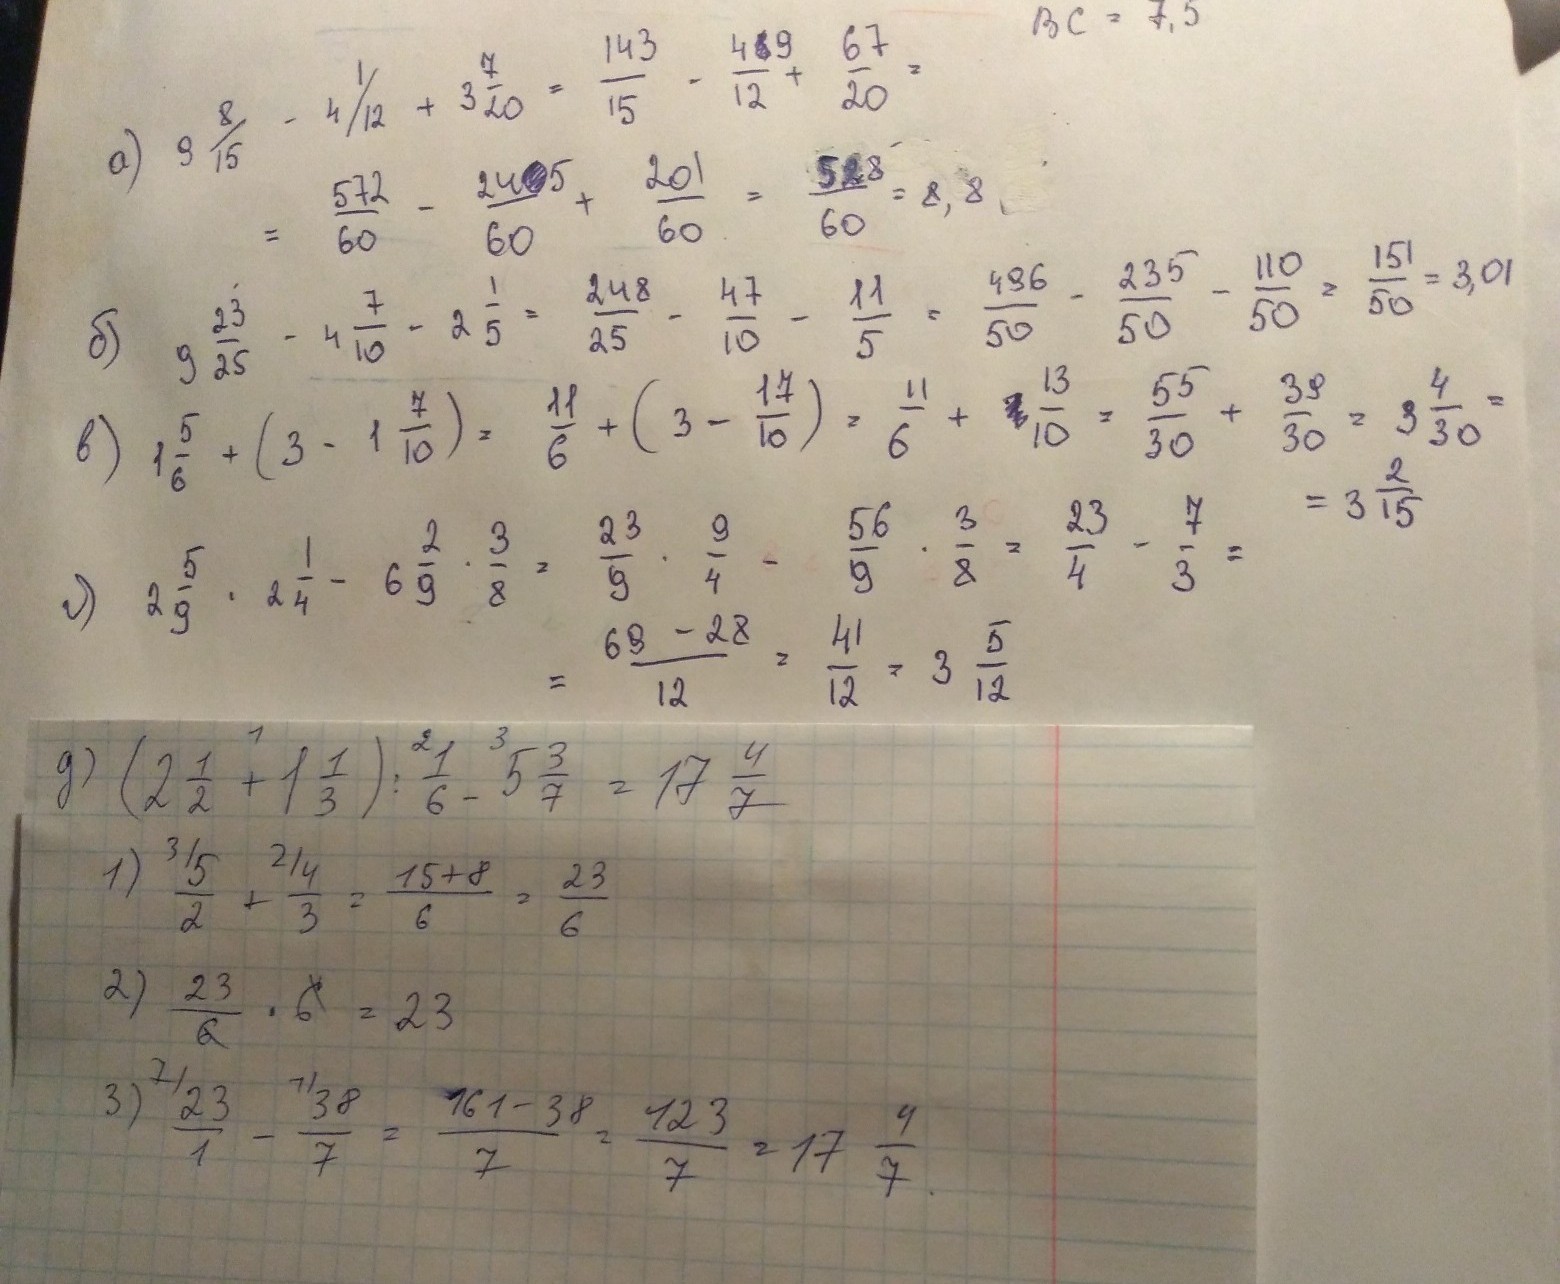 BC = 7,5
а) 9 8/15 - 4 1/12 + 3 7/20 = 143/15 - 49/12 + 67/20 =
= 572/60 - 245/60 + 201/60 = 528/60 = 8,8
б) 9 23/25 - 4 7/10 - 2 1/5 = 248/25 - 47/10 - 11/5 = 496/50 - 235/50 - 110/50 = 151/50 = 3,01
в) 1 5/6 + (3 - 1 7/10) = 11/6 + (3 - 17/10) = 11/6 + 13/10 = 55/30 + 39/30 = 3 4/30 =
= 3 2/15
г) 2 5/9 · 2 1/4 - 6 2/9 · 3/8 = 23/9 · 9/4 - 56/9 · 3/8 = 23/4 - 7/3 =
= 69 - 28/12 = 41/12 = 3 5/12
д) (2 1/2 +¹ 1 1/3) :² 1/6 -³ 5 3/7 = 17 4/7
1) ³/5/2 + ²/4/3 = 15+8/6 = 23/6
2) 23/6 · 6 = 23
3) ⁷/23/1 - ¹/38/7 = 161-38/7 = 123/7 = 17 4/7.